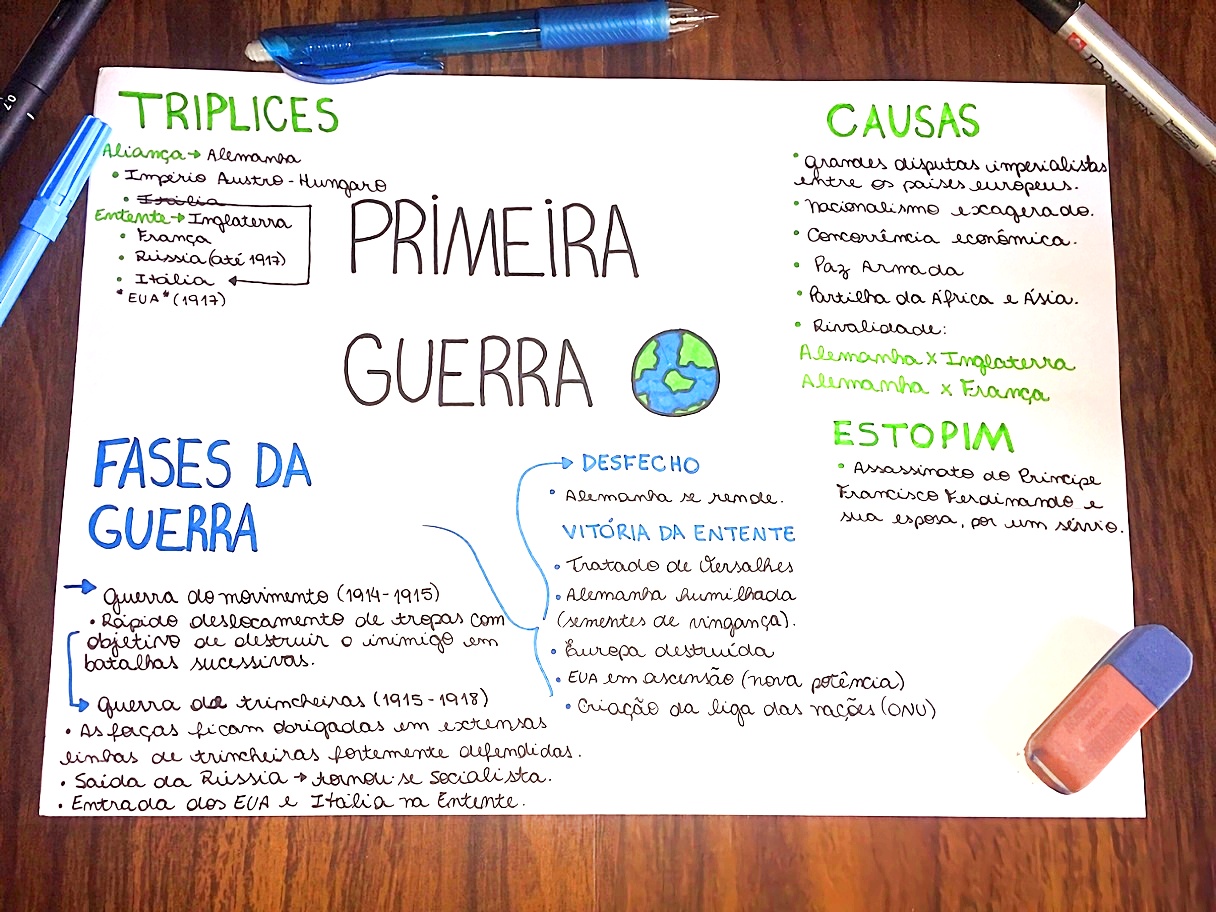 TRIPLICES
Aliança → Alemanha
• Império Austro-Hungaro
• Itália
Entente → Inglaterra
• França
• Rússia (até 1917)
• Itália ←
*EUA* (1917)
PRIMEIRA
GUERRA
CAUSAS
• grandes disputas imperialistas
entre os países europeus.
• Nacionalismo exagerado.
• Concorrência econômica.
• Paz Armada
• Partilha da África e Ásia.
• Rivalidade:
Alemanha x Inglaterra
Alemanha x França
ESTOPIM
• Assassinato do Príncipe
Francisco Ferdinando e
sua esposa, por um sérvio.
FASES DA
GUERRA
→ Guerra do movimento (1914-1915)
• Rápido deslocamento de tropas com
objetivo de destruir o inimigo em
batalhas sucessivas.
→ Guerra de trincheiras (1915-1918)
• As forças ficam obrigadas em extensas
linhas de trincheiras fortemente defendidas.
• Saída da Rússia → tornou-se Socialista.
• Entrada dos EUA e Itália na Entente.
→ DESFECHO
• Alemanha se rende.
VITÓRIA DA ENTENTE
• Tratado de Versalhes
• Alemanha humilhada
(sementes de vingança).
• Europa destruída
• EUA em ascensão (nova potência)
• Criação da liga das nações (ONU)
0.7